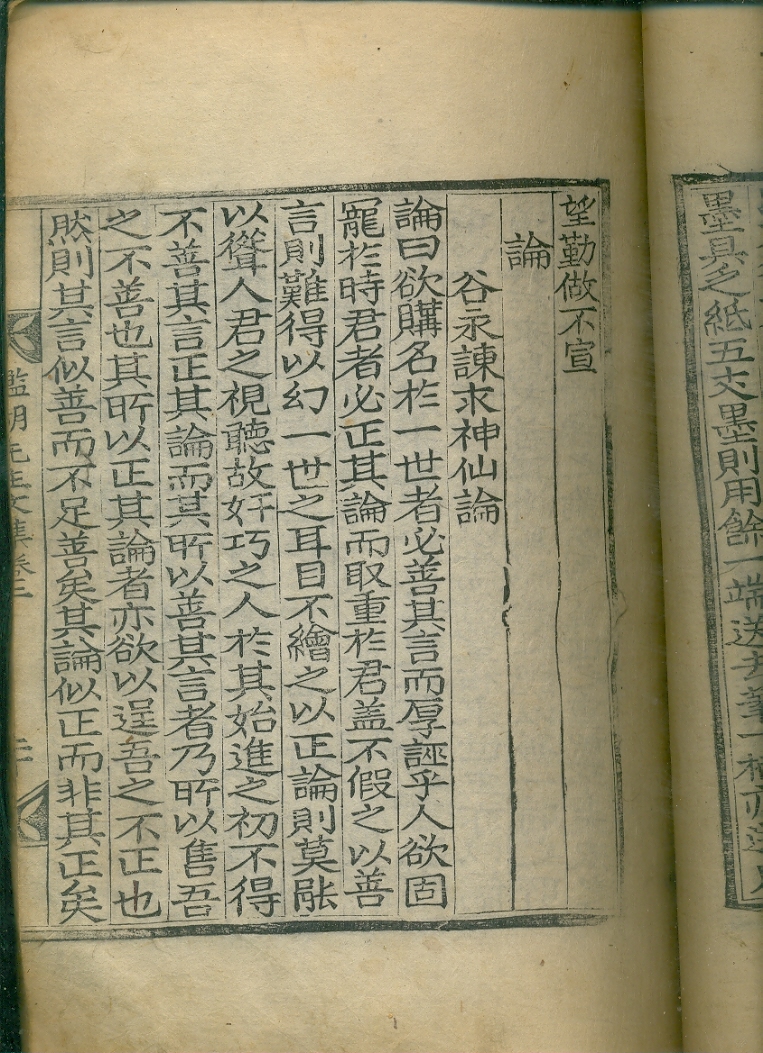 墨具乏紙五丈墨則用餘一端送去筆一柄亦送
望勤做不宣
論
谷永諫求神仙論
論曰欲購名於一世者必善其言而厚誣乎人欲固
寵於時君者必正其論而取重於君盖不假之以善
言則難得以幻一世之耳目不繪之以正論則莫能
以聳人君之視聽故奸巧之人於其始進之初不得
不善其言正其論而其所以善其言者乃所以售吾
之不善也其所以正其論者亦欲以逞吾之不正也
然則其言似善而不足善矣其論似正而非其正矣
先生文集卷三